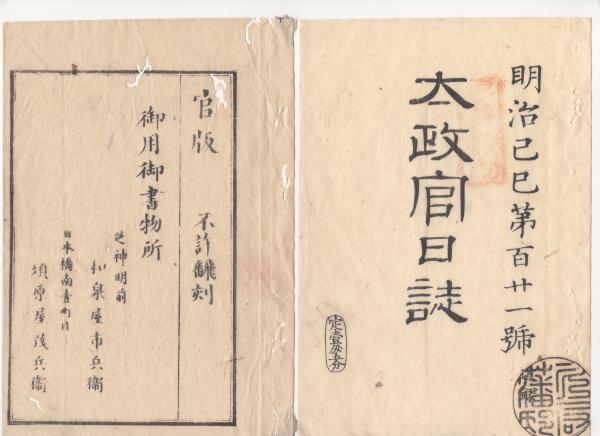 明治己巳第百廿一號
太政官日誌
官版　不許飜刻
御用御書物所
芝神明前
和泉屋市兵衞
日本橋南壹町目
須原屋茂兵衞